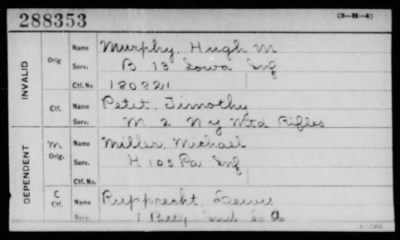 288353 (3-M-4)
INVALID
Orig Name Murphy, Hugh M
Serv. B 13 Iowa Inf
Ctf. No. 120221
Ctf. Name Petet, Timothy
Serv. M 2 N Y Mtd Rifles
DEPENDENT
M Orig. Name Miller, Michael
Serv. H 105 Pa Inf
Ctf. No.
C Ctf. Name Rupprecht,
Serv. 1 Batty Ind L A